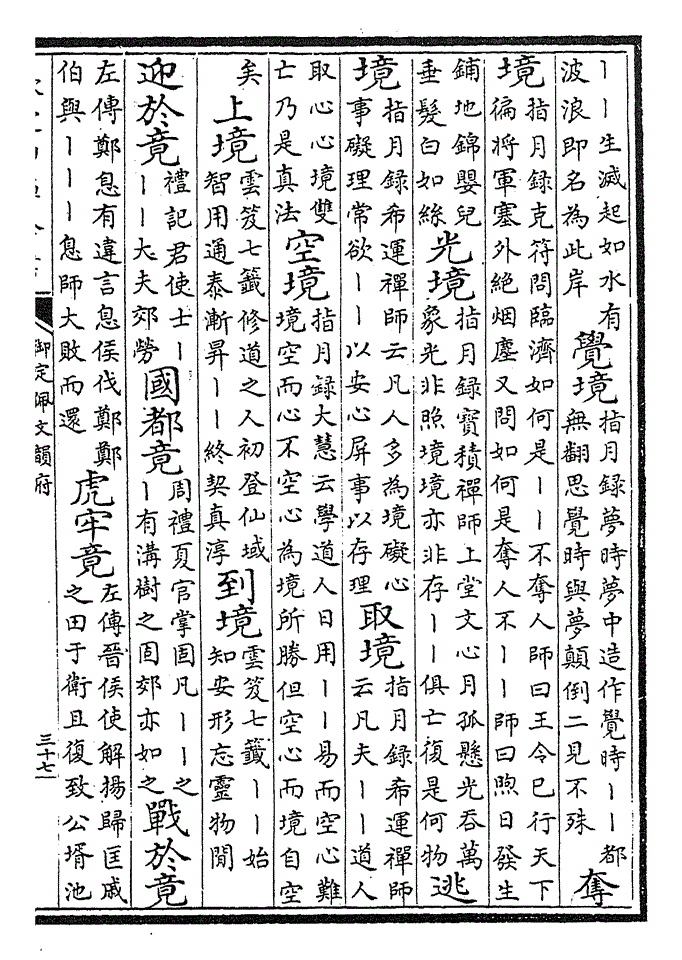 ｜｜生滅起如水有
波浪即名為此岸
覺境
指月錄夢時夢中造作覺時｜｜都
無翻思覺時與夢顛倒二見不殊
奪
境
指月錄克符問臨濟如何是｜｜不奪人師曰王令已行天下
徧將軍塞外絶烟塵又問如何是奪人不｜｜師曰煦日發生
鋪地錦嬰兒
垂髮白如絲
光境
指月錄寶積禪師上堂文心月孤懸光吞萬
象光非照境境亦非存｜｜俱亡復是何物
逃
境
指月錄希運禪師云凡人多為境礙心
事礙理常欲｜｜以安心屏事以存理
取境
指月錄希運禪師
云凡夫｜｜道人
取心心境雙
亡乃是真法
空境
指月錄大慧云學道人日用｜｜易而空心難
境空而心不空心為境所勝但空心而境自空
矣
上境
雲笈七籤修道之人初登仙域
智用通泰漸昇｜｜終契真淳
到境
雲笈七籤｜｜始
知安形忘靈物間
迎於竟
禮記君使士｜
｜｜大夫郊勞
國都竟
周禮夏官掌固凡｜｜之
｜有溝樹之固郊亦如之
戰於竟
左傳鄭息有違言息侯伐鄭鄭
伯與｜｜｜息師大敗而還
虎牢竟
左傳晉侯使解揚歸匡戚
之田于衛且復致公壻池
御定佩文韻府
三十七